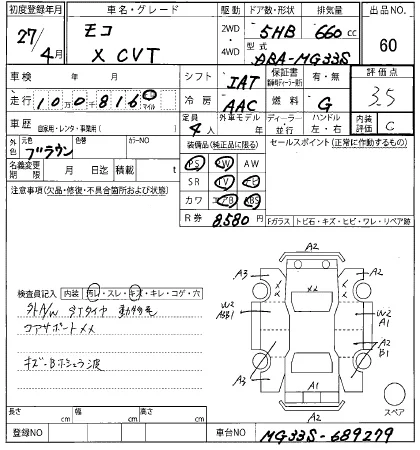 初度登録年月
車名・グレード
駆動
ドア数・形状
排気量
出品NO.
27/4月
モコ
X CVT
2WD
・
4WD
5HB
660cc
型式
ABA-MG33S
60
車検
年
月
シフト
IAT
保証書
有・無
評価点
3.5
走行
10万0千816
マイル
冷房
AAC
燃料
G
車歴
自家用・レンタ・事業用( )
定員
4人
外車モデル
年
ディーラー・並行
ハンドル
左・右
内装評価
C
外色
元色
ブラウン
色替
カラーNO
装備品(純正品に限る)
セールスポイント(正常に作動するもの)
名義変更期限
月
日迄
積載
t
PS
PW
AW
SR
TV
ナビ
カワ
エアB
ABS
R券
8,580円
注意事項(欠品・修復・不具合箇所および状態)
Fガラス
トビ石・キズ・ヒビ・ワレ・リペア跡
検査員記入
内装
汚レ・スレ・キズ・キレ・コゲ・穴
外A/W STタイヤ
コアサポートメメ
A2
A3
メメ
A2
W2
W2
A1
A2
B1
A3
A1
A2
スペア
長さ
cm
幅
cm
高さ
cm
登録NO
車台NO
MG33S-689279